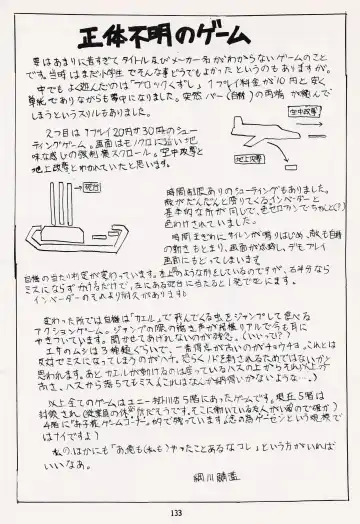 正体不明のゲーム
要はあまりに昔すぎてタイトル及びメーカー名がわからないゲームのこと
です。当時はまだ小学生でそんな事どうでもよかったというのもありますが。
中でもよく遊んだのが「ブロックくずし」1プレイが10円と安く
単純でありながらも夢中になりました。突然バー(自機)の両端が縮んで
しまうというスリルもありました。
2つ目は1プレイ20円か30円のシュー
ティングゲーム。画面はモノクロに近い地
味な感じの強制横スクロール。空中攻撃と
地上攻撃とわかれていたと思います。
空中攻撃
地上攻撃
砲台
時間制限ありのシューティングもありました。
敵がだんだんと降りてくるインベーダーと
基本的な所が同じで、色セロファンでちゃんと(?)
色わけされていました。
時間切まぎわに、サイレンが鳴りはじめ、敵も自機
の動きもとまり、画面が点滅し、デモプレイ
画面にもどってしまいます
自機の当たり判定が変わっています。左上図のような形をしているのですが、右半分なら
ミスにならずかけるだけで、左にある砲台に当たると1発で死にます。
インベーダーのそれより耐久があります
変わった所では自機は「カエル」で飛んでくる虫をジャンプして食べる
アクションゲーム。ジャングルの際の鳴き声が異様にリアルで今も耳に
やきついています。聞かせてあげれないのが残念。(いいって?)
エサのムシは3種類ぐらいで、一番得点が高いのがチョウチョ。これとは
反対でミスになってしまうのがハチ。恐らくノドを刺されるためではないかと
思われます。あとカエルが動けるのは座っているハスの上からそれ以上が
あき、ハスから落ちてもミス(これはなんか納得いかないような…。)
以上全てのゲームはユニー桂川店5階にあったゲームです。現在5階は
封鎖され(従業員の休憩所だそうです。そこに働いている友人がいるので確か)
4階に"お子様ゲームコーナー"的で残っています。(恋の為ゲーセンという規模で
はナイです♪)
私のほかにも「お、俺も(私も)やったことあるなコレ」という方がいれば
いいなあ。
133